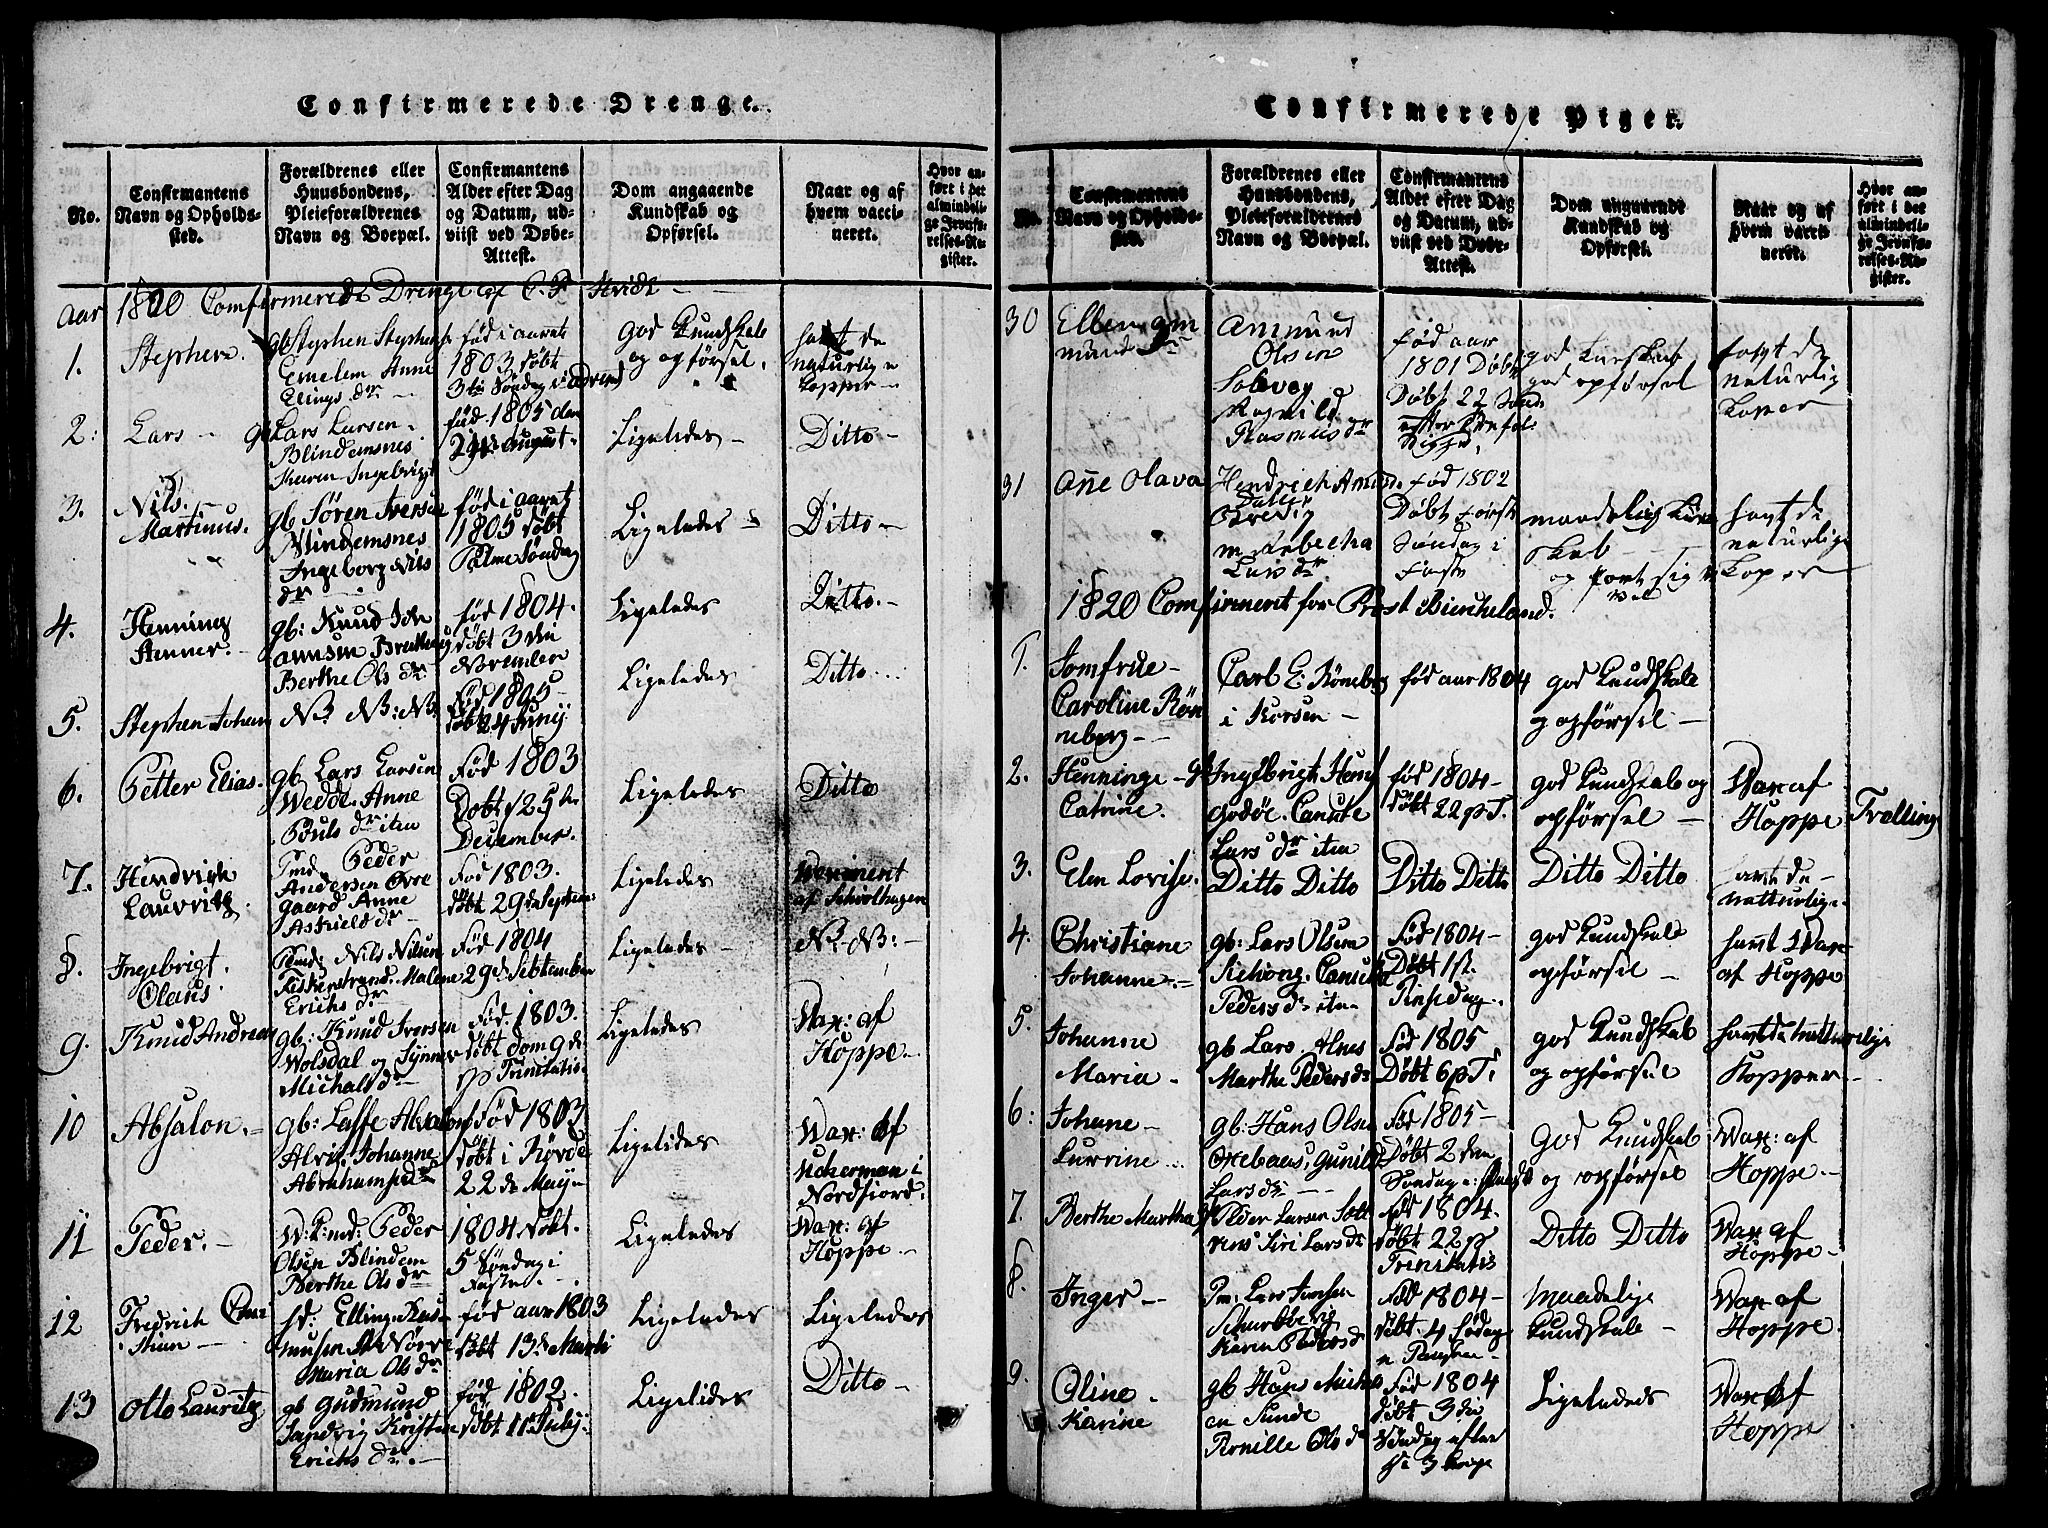 Confirmerede Drenge.
No.
Confirmantens
Navn og Opholds-
sted.
Forældrenes eller
Huusbondens,
Pleieforældrenes
Navn og Boepæl.
Confirmantens
Alder efter Dag
og Datum, ud-
viist ved Døbe-
Attest.
Dom angaaende
Kundskab og
Opførsel.
Naar og af
hvem vacci-
neret.
Hvor an-
ført i det
almindeli-
ge Jevnfø-
relses-Re-
gister.
Aar 1820 Comfirmerede Drenge af C. P. Hvidt
1.
Stephen.
gb Stephen Steph
Anne
Elings dr
fød i aaret
1803 døbt
3die Søndag i advend
God Kundskab
og opførsel.
havt de
naturlige
kopper
2:
Lars
gb Lars Larsen
Blindemsnes
Karen Ingebrigt
fød 1805 den
august
Ligeledes
Ditto
3.
Nils
Martinus.
gb Søren Iversen
Blindemsnes
Ingeborg Nils
dr
fød i aaret
1805 døbt
Palme Søndag
Ligeledes
Ditto
4.
Henning
gb: Knud
Berthe Ols dr
fød 1804.
døbt 3 die
November
Ligeledes
Ditto
5.
Stephen Johan
NB: NB: NB:
Fød 1805
døbt 24 Junij
Ligeledes
Ditto
6.
Petter Elias.
gb Lars Larsen
Wedde. Anne
Pouls dr item
Fød 1803
Døbt 25 de
December.
Ligeledes
Ditto
7.
Hendrich
Lauvritz.
Peder
Andersen Øvre
gaard Anne
Astrield dr
Fød 1803.
døbt 29 de Septem:
Ligeledes
af Schiolhagen
8.
Ingebrigt.
Olaus.
Nils Nilsen
Fiskerstrand Malene
Erichs dr
Fød 1804
29 de September
Ligeledes
NB: NB:
9.
Knud Andreas
gb: Knud Iversen
Wolsdal og Synnev
Michals dr
Fød: 1803.
døbt dom 9 de
p Trinitatis
Ligeledes
Vax: af
Hoppe
10
Absalon.
gb: Lasse Absalon
Alvis. Johanne
Abrahamse dr
Fød 1803
døbt i Rovde
22 de May
Ligelides
Vax: af
Uckerman i
Nordfiord.
11
Peder.
Peder
Olsen Blindem
Berthe Ols dr
1804 døbt.
5 Søndag i
Fasten.
Ligeledes
Vax: af
Hoppe
12
Fredrich
stian
Elling
Maria Ols dr
fød aar 1803
døbt 13 de Marti
Ligeledes
Ligeledes
13
Otto Lauritz
gb Gudmund
Sandvig Kristen
Erichs dr.
fød 1802.
døbt 11 Julij:
Ligelides
Ditto
Confirmerede Piger.
No.
Confirmantens
Navn og Opholds-
sted.
Forældrenes eller
Huusbondens,
Pleieforældrenes
Navn og Boepæl.
Confirmantens
Alder efter Dag
og Datum, ud-
viist ved Døbe-
Attest.
Dom angaaende
Kundskab og
Opførsel.
Naar og af
hvem vacci-
neret.
Hvor an-
ført i det
almindeli-
ge Jevnfø-
relses-Re-
gister.
30
Ellen
Ammund
Olsen
Solevog
Ragnild
Rasmus dr
Fød aar
1801 Døbt
Døbt 22 Sønd
efter
god kunskab
god opførsel
havt de
naturlig
koper
31
Ane Olava
Hendrich
Rebecha
Lars dr
fød 1802
Døbt første
Søndag i
Faste
maadelig kun
skab
og
havt de
naturlige
koper
1820 Comfirment for Prost Buscheland.
1.
Jomfrue
Caroline Røn
neberg
Carl E. Røneberg
i Korsen
fød aar 1804
god kundskab
og opførsel
2.
Henninge
Catrine.
gb Ingebrigt
Godøe. Canute
Lars dr item
fød 1804
døbt 22 p T.
god kundskab og
opførsel
Vax af
Hoppe
Trælling
3.
Elen Lovise.
Ditto Ditto
Ditto Ditto
Ditto Ditto
havt de
natturlige
4.
Christiane
Johanne
gb: Lars Olsen
Canute
Peders dr item
Fød 1804
Døbt 1st.
Pinsedag
god kundskab
opførsel
Vax
af Hoppe
5.
Johanne
Maria
gb Lars Alnes
Marthe Peders dr
Fød 1805
Døbt 6 p T.
god kundskab
og opførsel
havt de natturlige
Kopper
6:
Johane
Lurrine
gb: Hans Olsen
Gunild
Lars dr
Fød 1805
Døbt 2 den
Søndag
God kundskab
og opførsel
Vax: af
Hoppe
7.
Berthe Martha
Peder Larsen
Siri Lars dr
Fød 1804.
døbt 22 p
Trinitatis
Ditto Ditto
Vax af
Hoppe
8.
Inger
Lars
Karen Peders dr
Fød 1804
døbt 4 Sødag
maadelige
kundskab
Vax af
Hoppe.
9.
Oline
Karine
gb Hans
Sunde
Pernille Ols dr
Fød 1804
døbt 3 die
Søndag efter
Ligeledes
Vax af
Hoppe